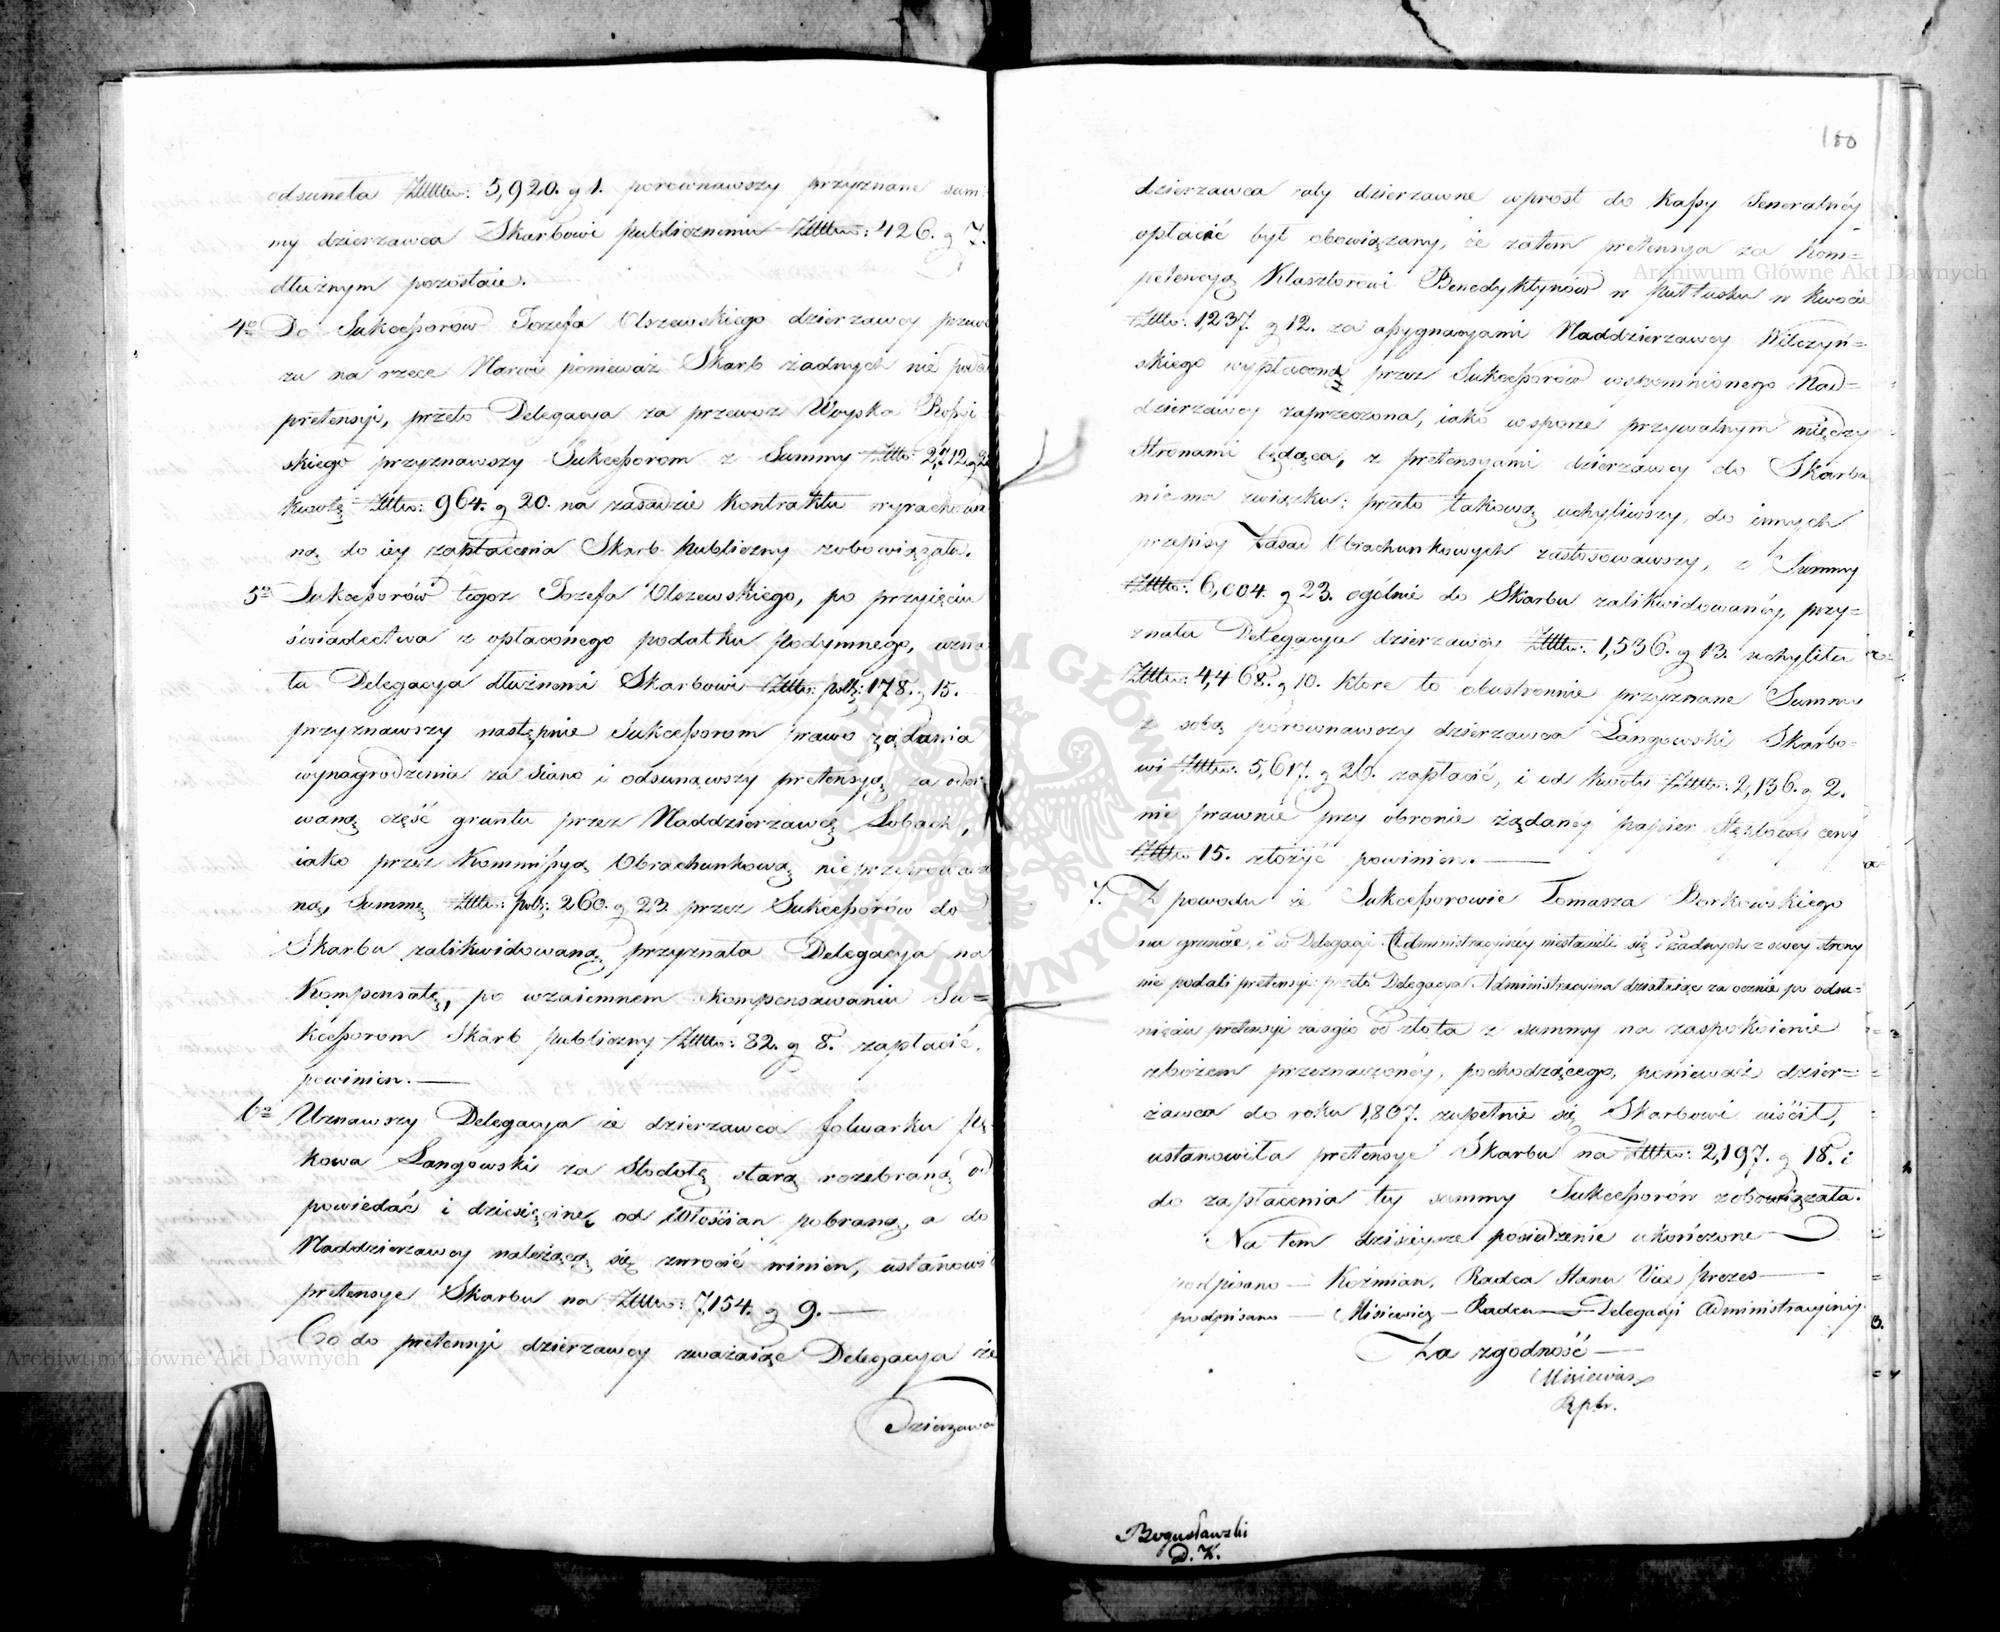 odsuneła Złttw: 5,920. g 1. porównawszy przyznane sum=
my dzierzawca Skarbowi publicznemu Złttw: 426. g 7.
dłużnym pozostaie.
4o Do Sukcessorów Jozefa Olszewskiego dzierzawcy przewo
zu na rzece Narwi ponieważ Skarb żadnych nie podał
pretensyi, przeto Delegacya za przewoz Woyska Rossyi
skiego przyznawszy Sukcessorom z Summy Złttw: 2,712 g 2
kwotę Złttw: 964. g 20. na zasadzie Kontraktu wyrachowa
ną do iey zapłacenia Skarb Publiczny zobowiązała.
5o Sukcessorów tegoz Jozefa Olszewskiego, po przyięciu
świadectwa z opłaconego podatku Podymnego, uzna
ła Delegacya dłużnemi Skarbowi Złttw: pols: 178. g 15.
przyznawszy następnie Sukcessorom prawo żądania
wynagrodzenia za Siano i odsunąwszy pretensyą za oder
waną część gruntu przez Naddzierzawcę Lobach,
iako przez Kommissyą Obrachunkową nieprzeprowadzo
ną, Summę Złttw: pols: 260. g 23. przez Sukcessorów do
Skarbu zalikwidowaną przyznała Delegacya na
Kompensatę, po wzaiemnem skompensowaniu Su=
kcessorom Skarb publiczny Złttw: 82. g 8. zapłacić
powinien.
6o Uznawszy Delegacya że dzierzawca folwarku Pę
kowa Langowski za Stodołę starą rozebraną od
powiedać i dziesięcinę od Włościan pobraną, a do
Naddzierzawcy należącą się zwrocić winien, ustanowi
pretensye Skarbu na Złttw: 7,154. g 9.
Co do pretensyi dzierzawcy zwazaiąc Delegacya że
Dzierzawca
100
dzierzawca raty dzierzawne wprost do Kassy Generalnéy
opłacać był obowiązany, że zatem pretensya za Kom=
petencyą Klasztorowi Benedyktynów w Pułtusku w kwocie
Złttw: 1,237. g 12. za assygnacyami Naddzierzawcy Wilczyń=
skiego wypłaconą przez Sukcessorów wspomnionego Nad=
dzierzawcy zaprzeczona, iako w sporze prywatnym między
Stronami będąca, z pretensyami dzierzawcy do Skarbu
niema związku: przeto takową uchyliwszy, do innych
przepisy Zasad Obrachunkowych zastosowawszy, z Summy
Złttw: 6,004. g 23. ogólnie do Skarbu zalikwidowanéy, przy=
znała Delegacya dzierzawcy Złttw: 1,536. g 13. uchyliła
Złttw: 4,468. g 10. ktore to obustronnie przyznane Summy
z sobą porownawszy dzierzawca Langowski Skarbo=
wi Złttw: 5,617. g 26. zapłacić, i od kwoty Złttw: 2,136. g 2.
nie prawnie przy obronie żądanéy papier stęplowy ceny
Złttw 15. złożyć powinien.
7. Z powodu że Sukcessorowie Tomasza Borkowskiego
na gruncie, i w Delegacyi Administracyinéy niestawili się i żadnych z swey strony
nie podali pretensyi przeto Delegacya Administracyina działaiąc zaocznie po odsu=
nięciu pretensyi za agio od złota z summy na zaspokoienie
zbożem przeznaczonéy, pochodzącego, ponieważ dzier=
żawca do roku 1,807. zupełnie się Skarbowi uiścił,
ustanowiła pretensye Skarbu na Złttw: 2,197. g 18. i
do zapłacenia tey summy Sukcessorów zobowiązała.
Na tem dzisieysze posiedzenie ukończone
podpisano — Koźmian, Radca Stanu Vice prezes
podpisano — Misiewicz — Radca — Delegacyi Administracyiney
Za zgodność
Misiewicz
Bogusławski
D. K.